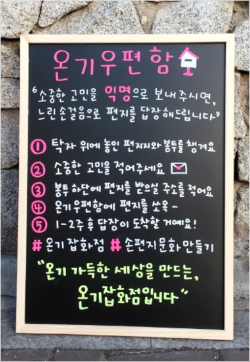 온기우편함
"소중한 고민을 익명으로 보내주시면,
느린 손걸음으로 편지를 답장해드립니다"
① 탁자 위에 놓인 편지지와 봉투를 챙겨요
② 소중한 고민을 적어주세요
③ 봉투 하단에 편지를 받으실 주소를 적어요
④ 온기우편함에 편지를 쏘옥~
⑤ 1-2주 후 답장이 도착할 거예요!
# 온기잡화점 # 손편지문화만들기
"온기 가득한 세상을 만드는,
온기잡화점입니다"